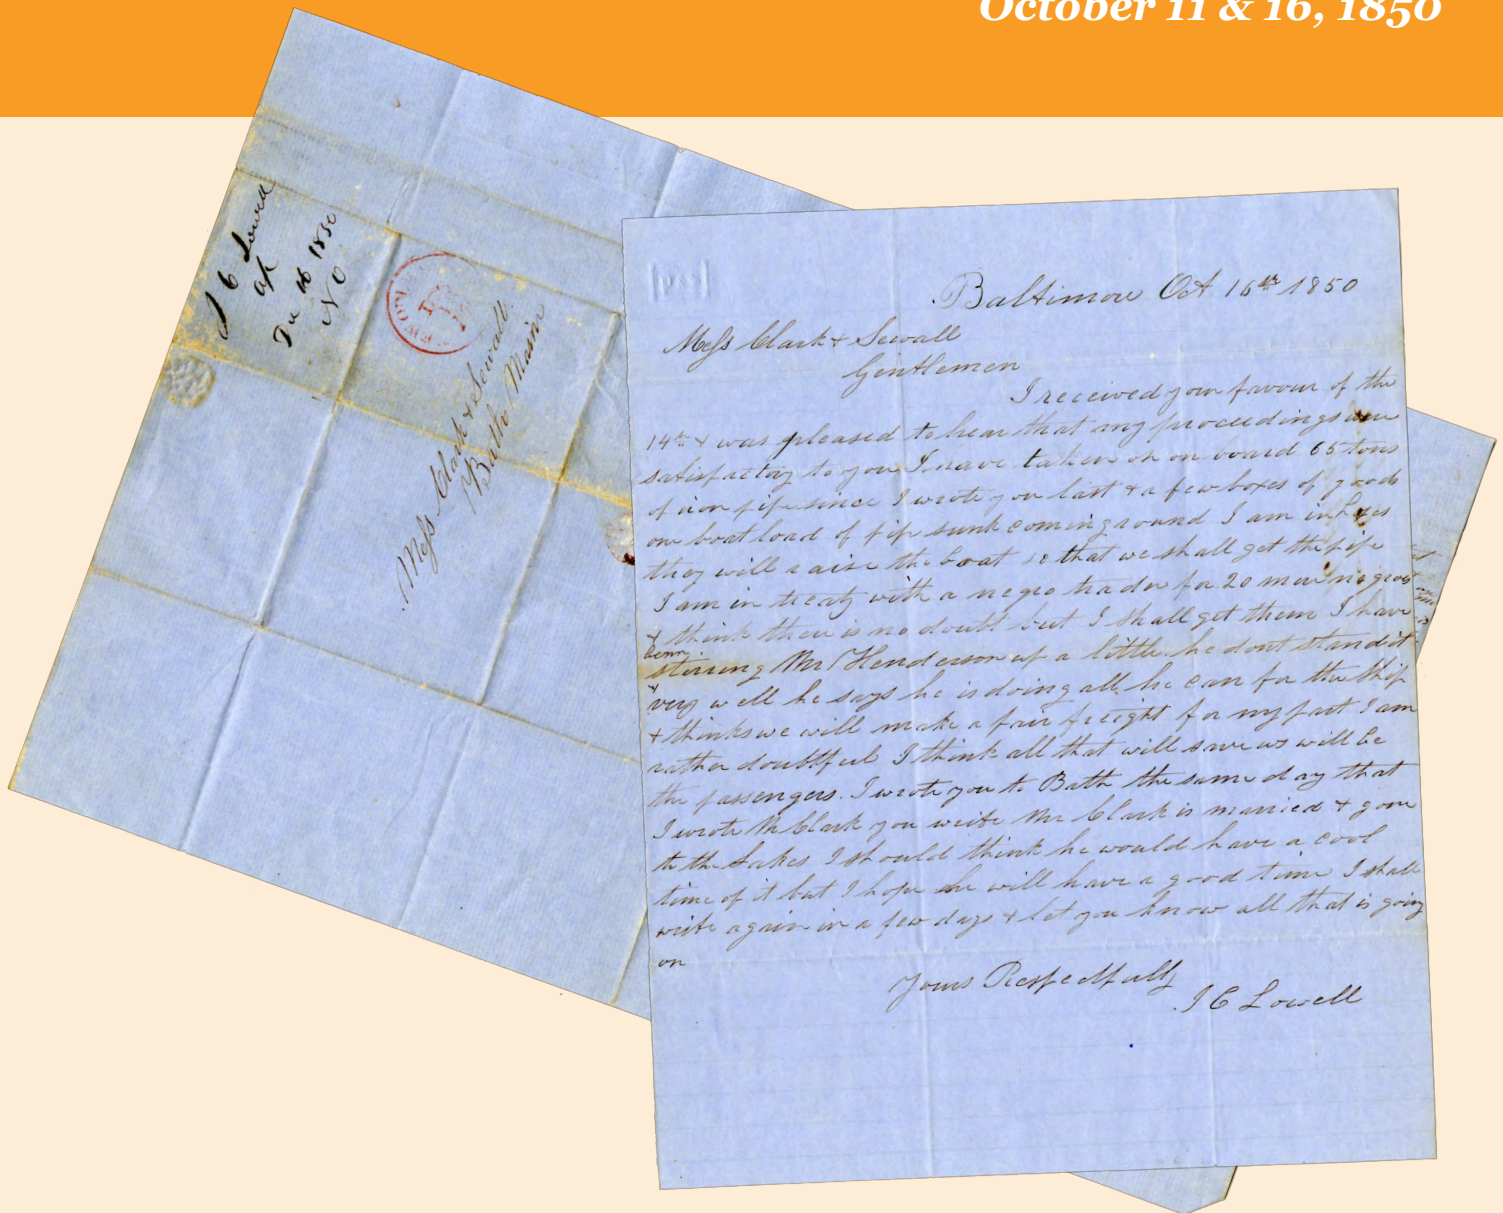 October 11 & 16, 1850
J C Lowell
Dec 16 1850
N O
Mess Clark & Sewall
Bath Maine
Baltimore Oct 16th 1850
Mess Clark & Sewall
Gentlemen
I received your favour of the
14th & was pleased to hear that my proceedings were
satisfactory to you I have taken on on board 65 tons
of iron pipe since I wrote you last & a few boxes of goods
one boat load of pipe sunk coming round I am in hopes
they will raise the boat so that we shall get the pipe
I am in treaty with a negro trader for 20 more negroes
& think there is no doubt but I shall get them I have
been
stirring Mr Henderson up a little he dont stand it
very well he says he is doing all he can for the Ship
& thinks we will make a fair freight for my part I am
rather doubtful I think all that will save us will be
the passengers. I wrote you to Bath the same day that
I wrote Mr Clark you write Mr Clark is married & gone
to the Lakes I should think he would have a cool
time of it but I hope he will have a good time I shall
write again in a few days & let you know all that is going
on
Yours Respectfully
J C Lowell